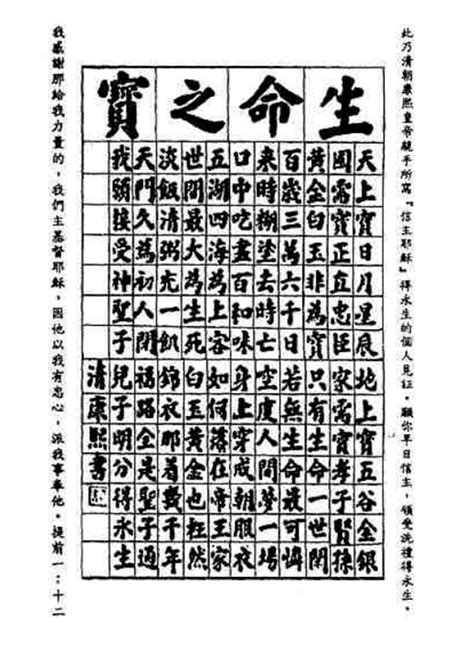 此乃清朝康熙皇帝親手所寫『信主耶穌』得永生的個人見証。願你早日信主,領受洗禮得永生。
生命之寶
天上寶日月星辰地上寶五谷金銀
國需寶正直忠臣家需寶孝子賢孫
黃金白玉非為寶只有生命一世閑
百歲三萬六千日若無生命最可憐
來時糊塗去時亡空度人間夢一場
口中吃盡百和味身上穿成朝服衣
五湖四海為上客如何落在帝王家
世間最大為生死白玉黃金也枉然
淡飯清粥充一飢錦衣那着幾千年
天門久為初人閉福路全是聖子通
我願接受神聖子兒子明分得永生
清康熙書
我感謝那給我力量的,我們主基督耶穌,因他以我有忠心,派我事奉他。提前一:十二